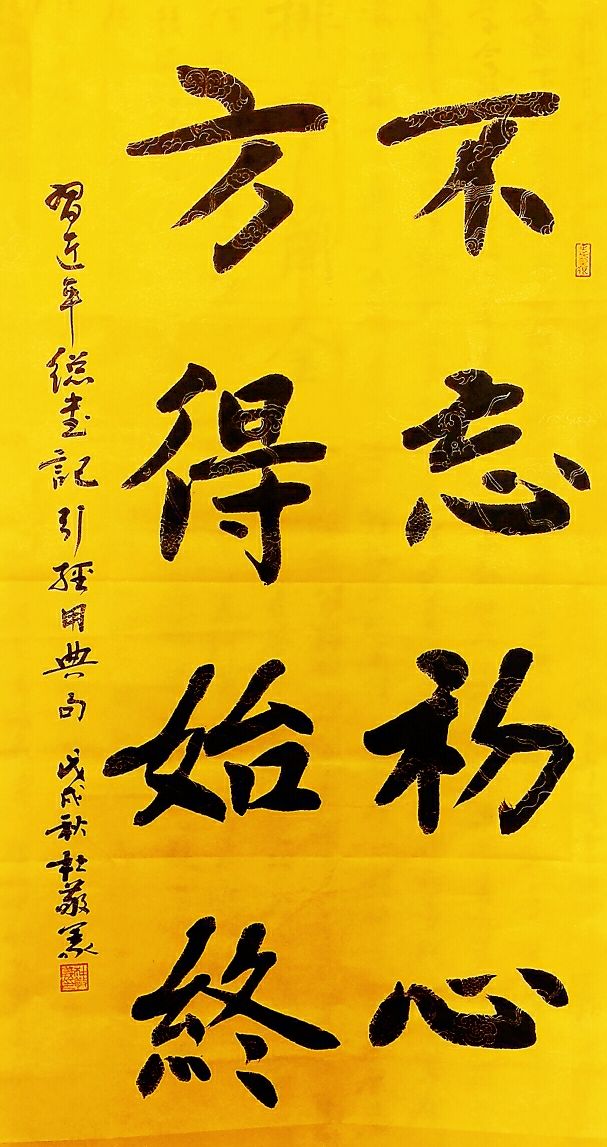 不忘初心
方得始終
習近平總書記引經用典句 戊戌秋杜敬義